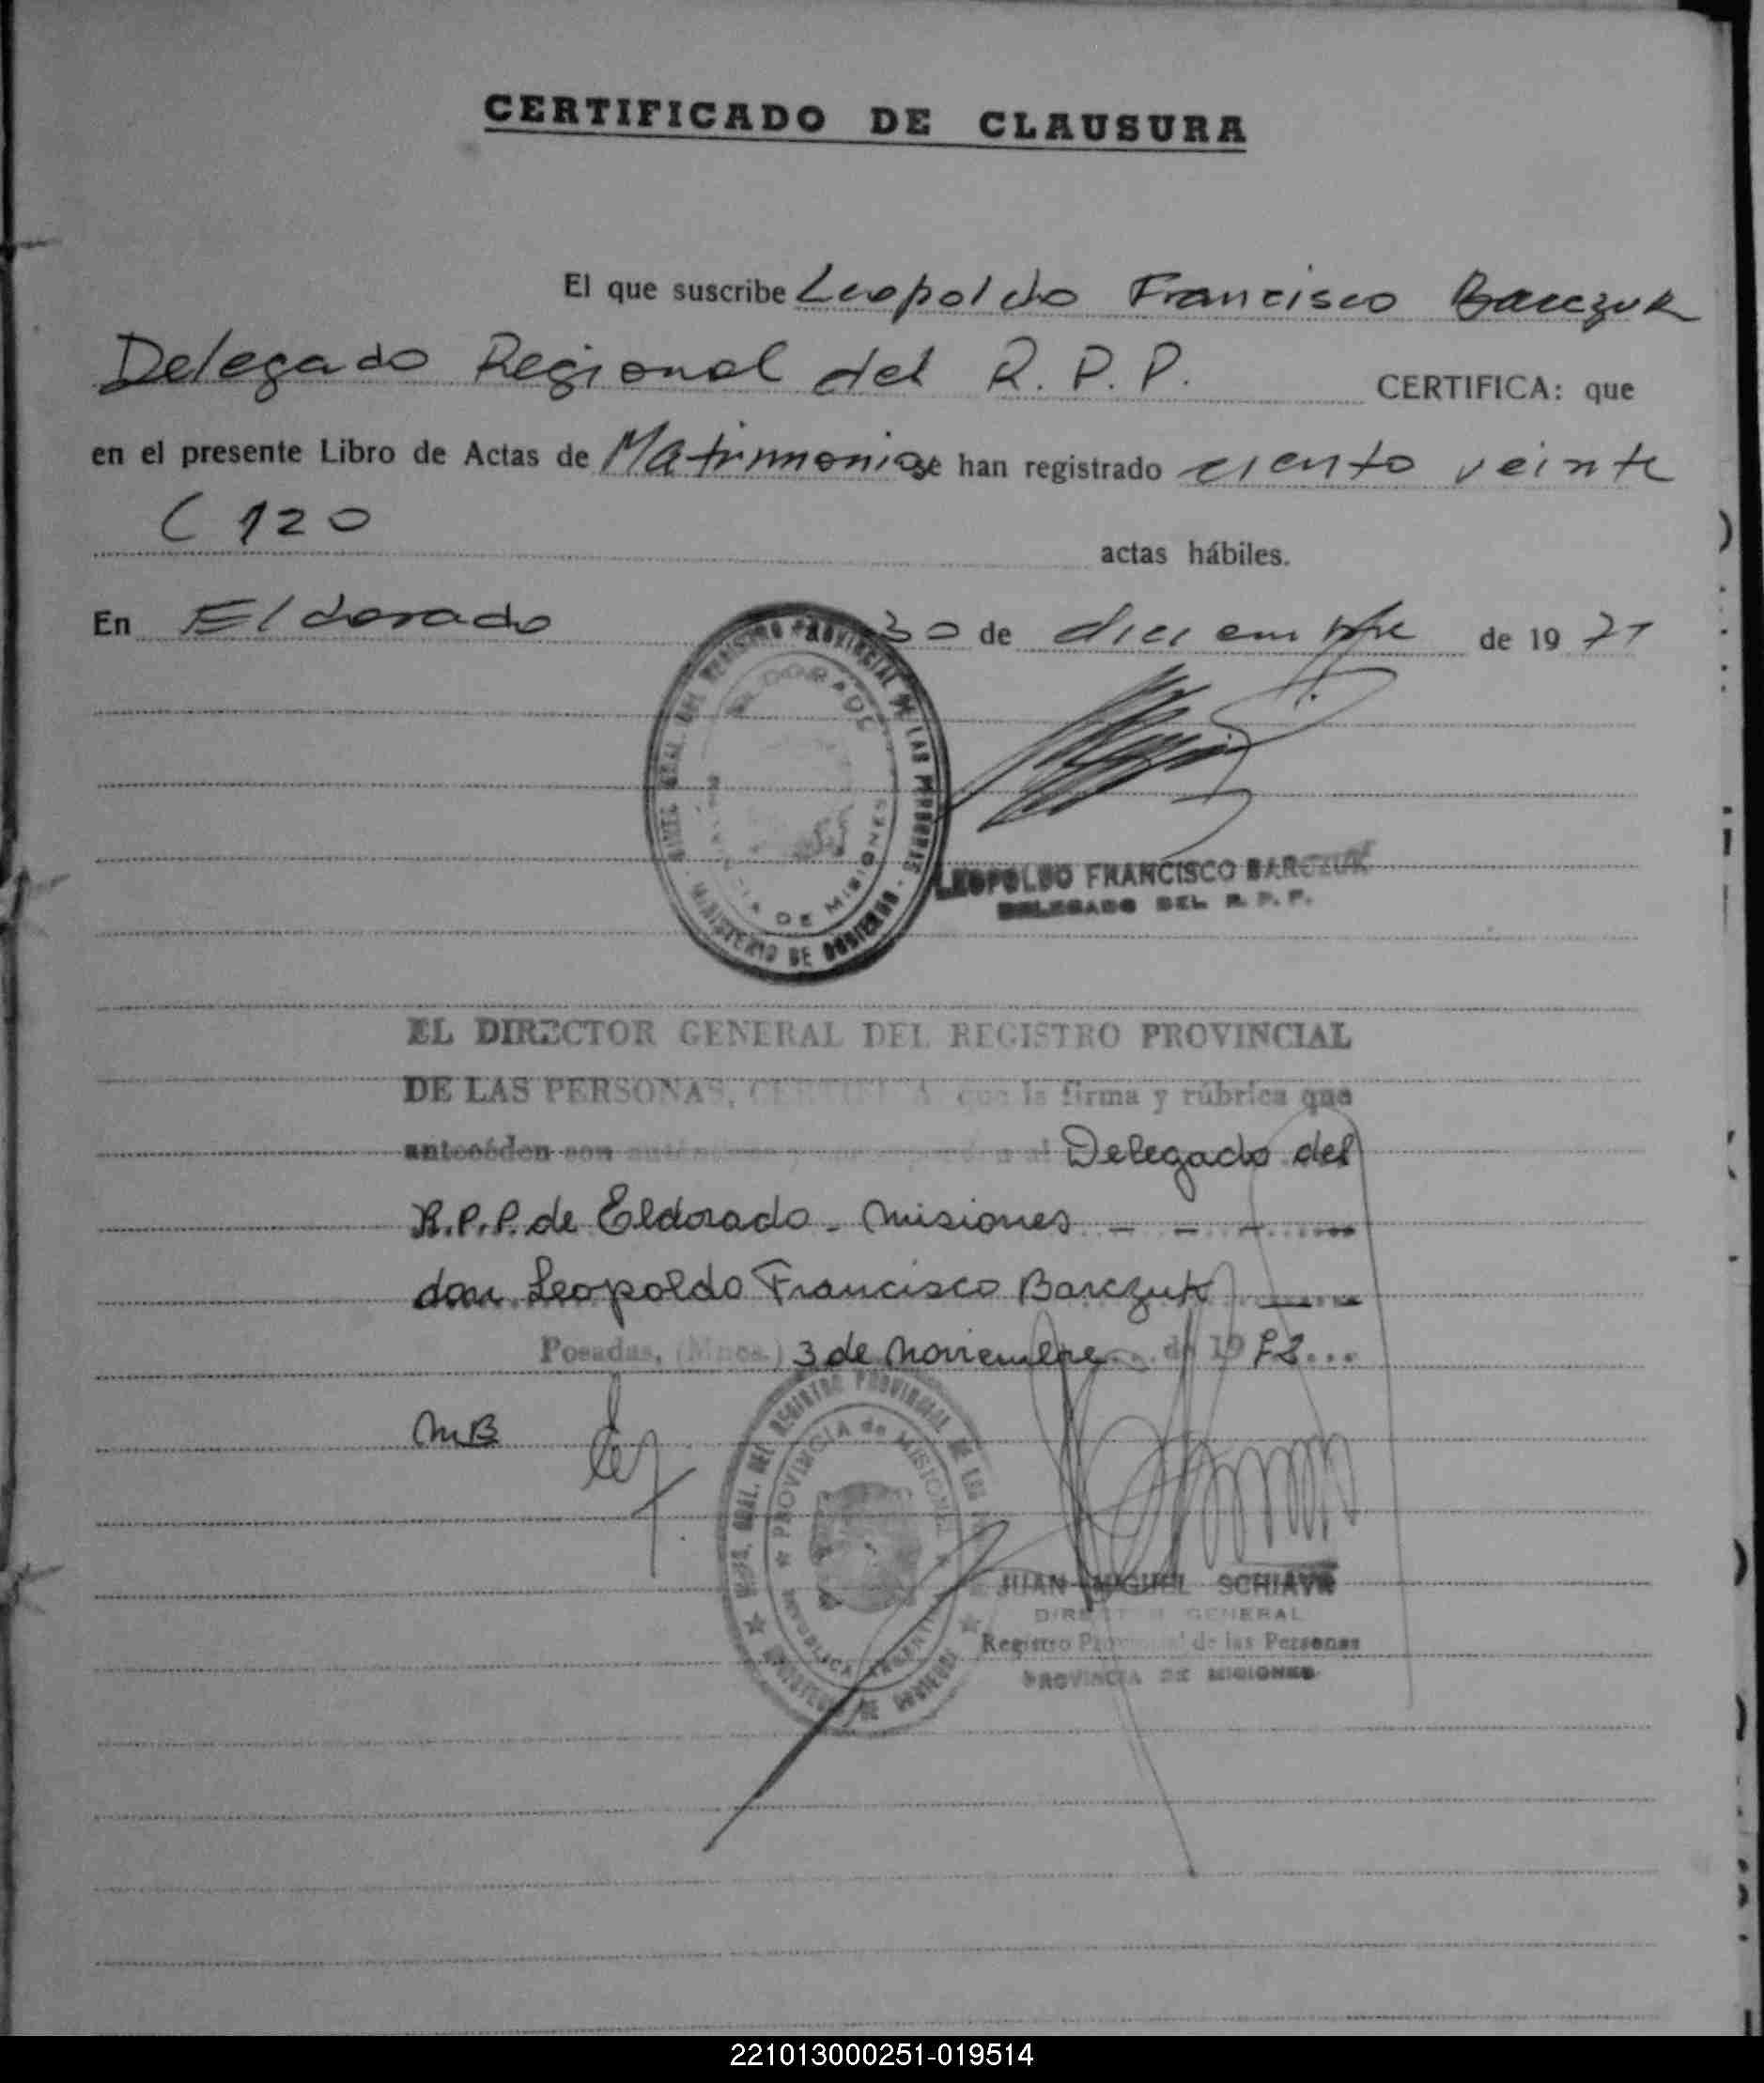 CERTIFICADO DE CLAUSURA
El que suscribe Leopoldo Francisco Barczuk
Delegado Regional del R.P.P. CERTIFICA: que
en el presente Libro de Actas de Matrimonio se han registrado ciento veinte
( 120
actas hábiles.
En Eldorado 30 de diciembre de 1971
DEL REGISTRO PROVINCIAL DE LAS PERSONAS
MINISTERIO DE GOBIERNO
ELDORADO
PROVINCIA DE MISIONES
LEOPOLDO FRANCISCO BARCZUK
DELEGADO DEL R. P. P.
EL DIRECTOR GENERAL DEL REGISTRO PROVINCIAL
DE LAS PERSONAS, CERTIFICA que la firma y rúbrica que
anteceden son al Delegado del
R.P.P. de Eldorado - Misiones - - -
don Leopoldo Francisco Barczuk
Posadas, (Mnes.) 3 de Noviembre de 1972...
MB
GRAL. DEL REGISTRO PROVINCIAL DE LAS
MINISTERIO DE GOBIERNO
PROVINCIA de MISIONES
REPUBLICA ARGENTINA
JUAN MIGUEL SCHIAVO
DIRECTOR GENERAL
Registro Provincial de las Personas
PROVINCIA DE MISIONES
221013000251-019514